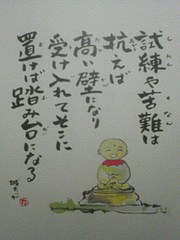 試練や苦難は
抗えば
高い壁になり
受け入れてそこに
置けば踏み台になる